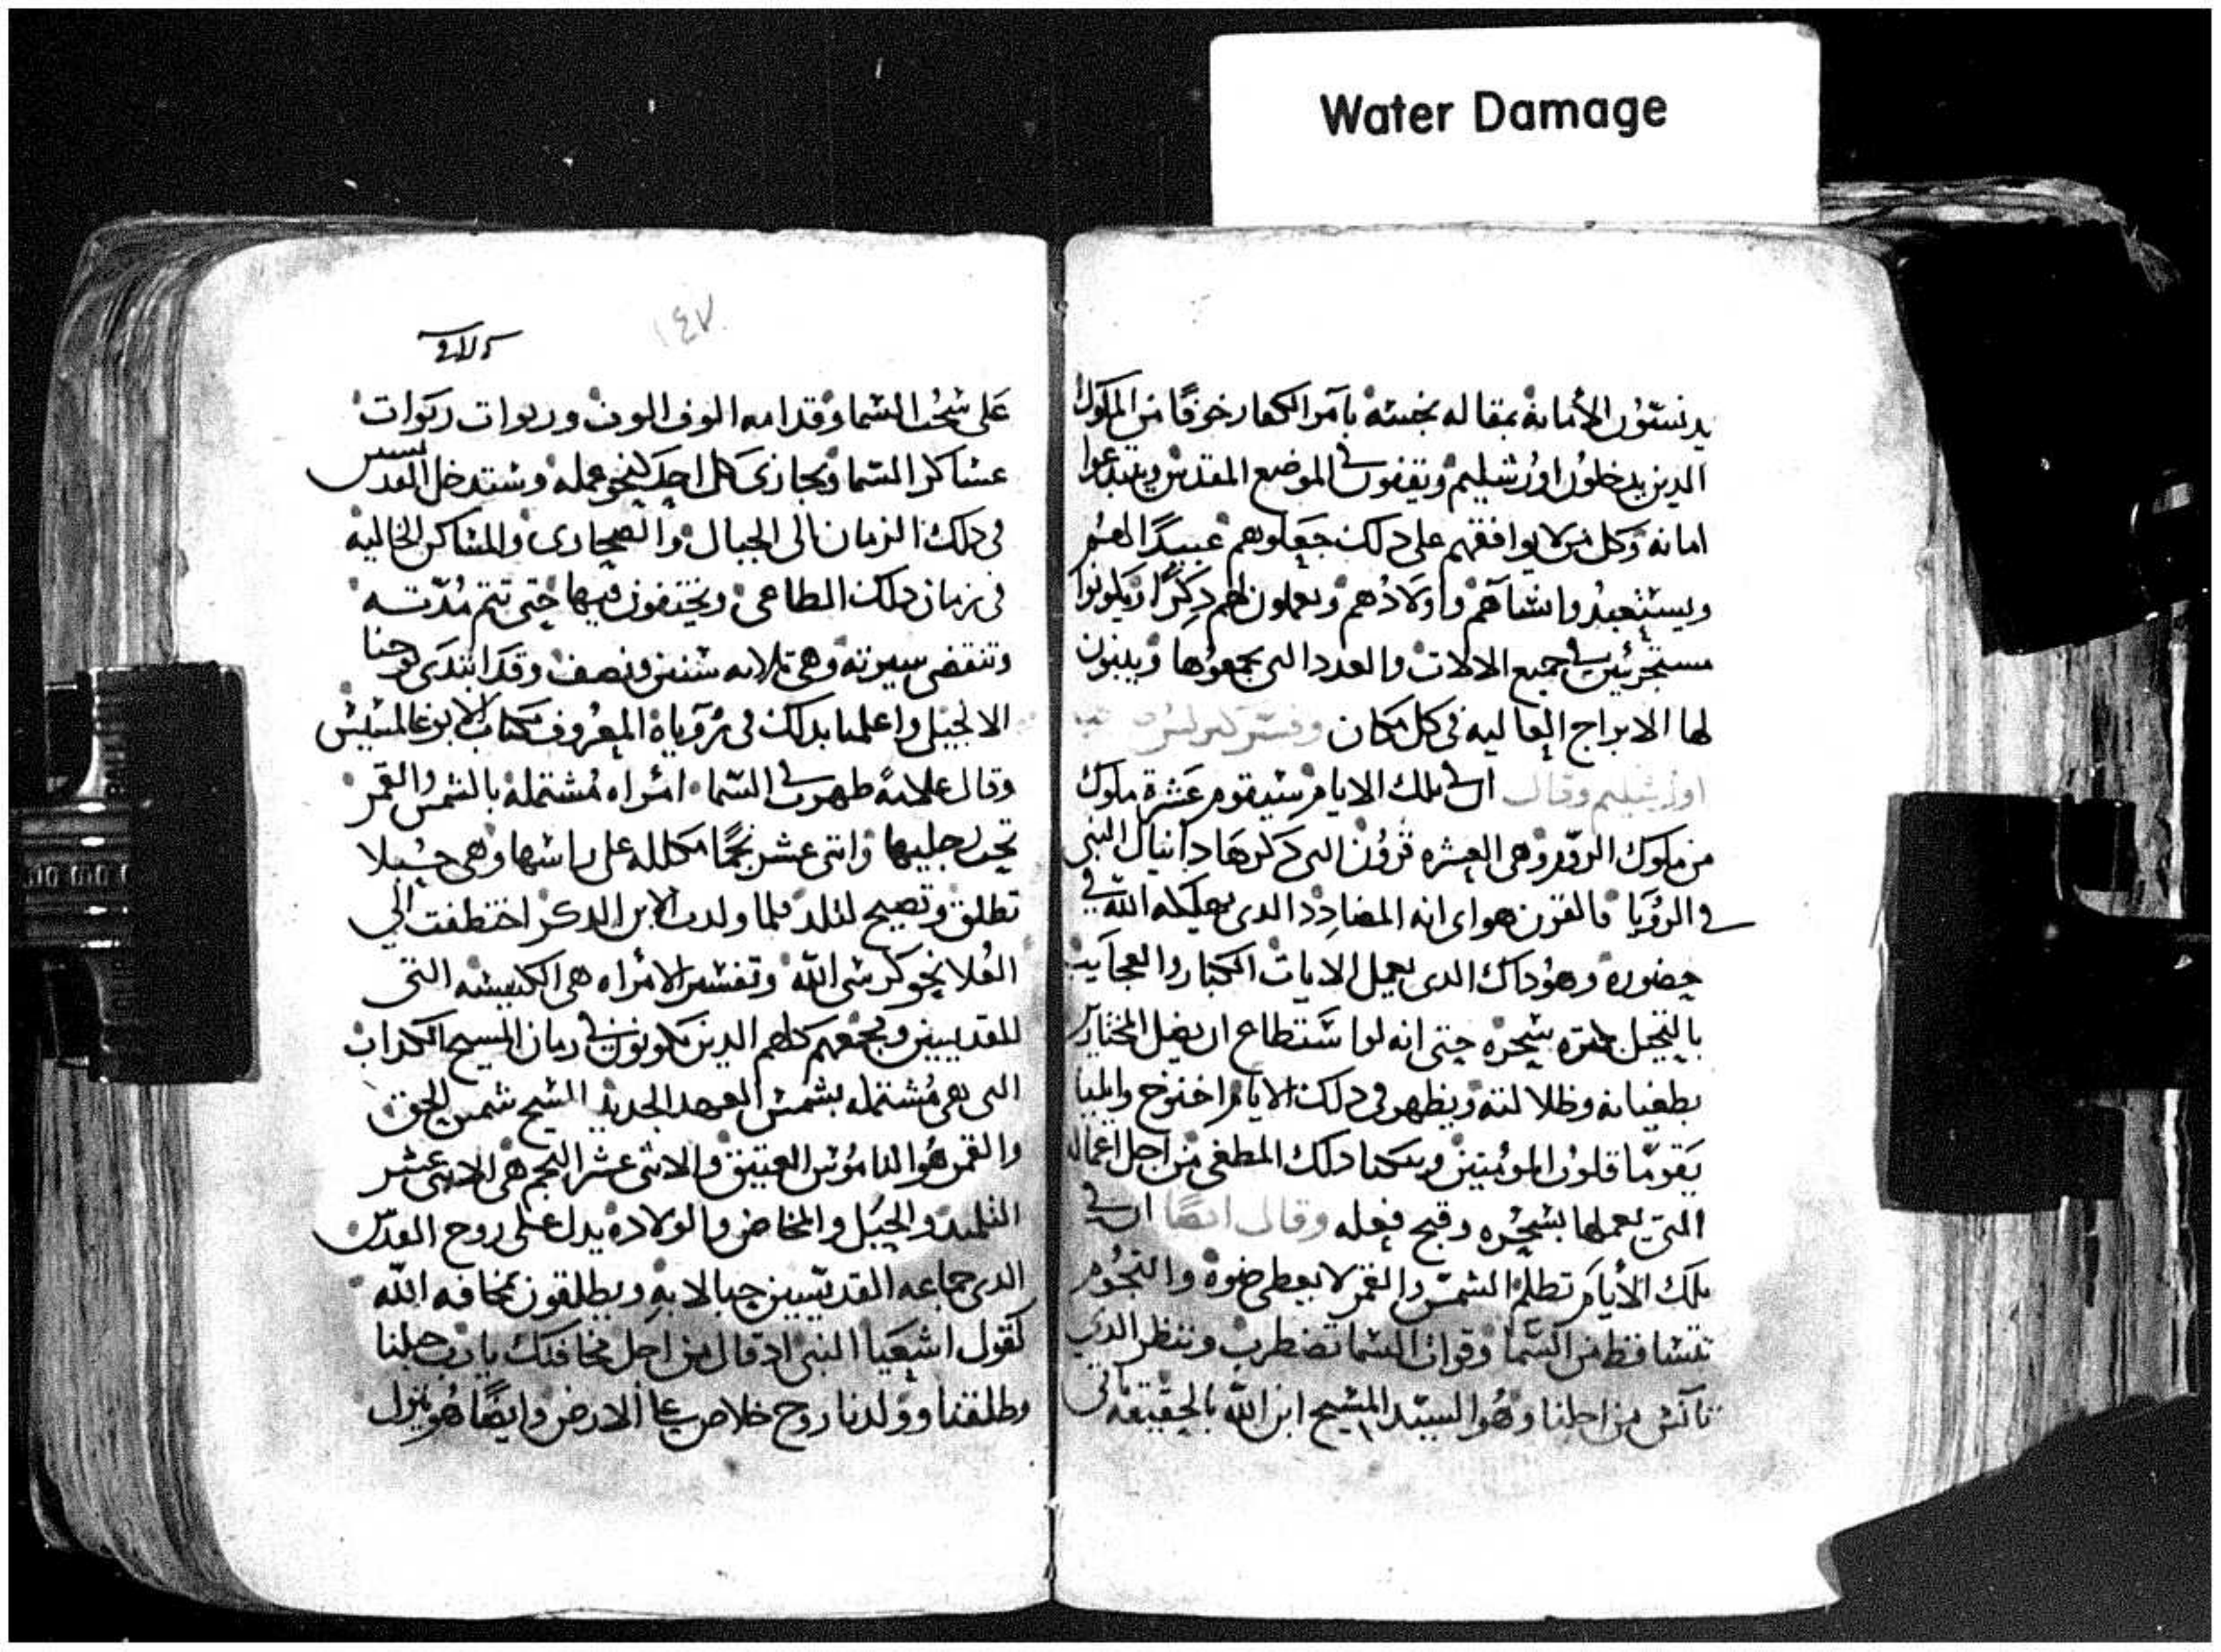 Water Damage
يدنسون الأمانة بمقاله نجسه بآمر الكفار خوفًا من الملوك
الدين يدخلون اورشليم ويقفون في الموضع المقدس ويبتدعوا
امانه وكل من لا يوافقهم على دلك جعلوهم عبيدًا لهم
ويستعبدوا نساهم واولادهم ويعملون لهم دكرًا ويكونوا
مستجرئين في جميع الالات والعدد التى يجمعوها ويبنون
لها الابراج العاليه في كل مكان وفسر كيرلس
اورشليم وقال ان في تلك الايام سيقوم عشرة ملوك
من ملوك الروم وهى العشره قرون التى دكرها دانيال النبى
في الرؤيا فالقرن هو اى انه المضادد الدى يهلكه الله في
حضوره وهو داك الدى يعمل الايات الكبار والعجايب
بالتخيل سحره حتى انه لو استطاع ان يضل المختارين
بطغيانه وظلالته ويظهر في دلك الايام اخنوخ وايليا
يقوما قلوب المومنين ويبكتا دلك المطغى من اجل اعماله
التى يعملها بسحره وقبح فعله وقال ايضًا ان في
تلك الأيام تظلم الشمس والقمر لا يعطى ضوه والنجوم
تتساقط من السما وقوات السما تضطرب وننظر الدى
تأنس من اجلنا وهو السيد المسيح ابن الله بالحقيقه ياتى
١٤٧
على سحب السما وقدامه الوف الوف وربوات ربوات
عساكر السما ويجازى كل احد كنحو عمله وستدخل القديسين
فى دلك الزمان الى الجبال والصحارى والمساكن الخاليه
فى زمان دلك الطاغى ويختفون فيها حتى تتم مدته
وتنقضى سيرته وهى تلاته سنين ونصف وقد ابتدى يوحنا
الانجيلى واعلمنا بدلك فى رؤياه المعروف بكتاب الابوغالمسيس
وقال علامة ظهرت في السما امراه مشتمله بالشمس والقمر
تحت رجليها واتنى عشر نجمًا مكلله على راسها وهى حبلا
تطلق وتصيح لتلد فلما ولدت الابن الدكر اختطفت الى
العلا نحو كرسى الله وتفسير الامراه هى الكنيسه التى
للقديسين وتجمعهم كلهم الدين يكونون في زمان المسيح الكداب
التى هى مشتمله بشمس العهد الجديد المسيح شمس الحق
والقمر هو الناموس العتيق والاتنى عشر النجم هى الاتنى عشر
التلميد والحبل والمخاض والولاده يدل على روح القدس
الدى جماعه القديسين حبالا به ويطلقون بمخافه الله
كقول اشعيا النبى اد قال من اجل مخافتك يا رب حبلنا
وطلقنا وولدنا روح خلاص على الارض وايضًا هو ينزل